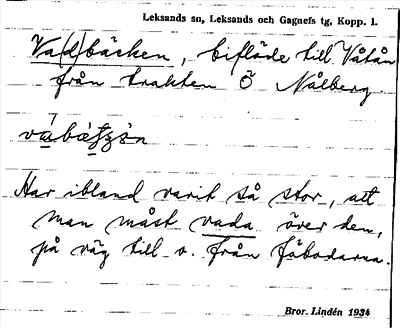 Leksands sn, Leksands och Gagnefs tg, Kopp. l.
Va(d)bäcken, biflöde till Våtån
från trakten Ö Nålberg
Har ibland varit så stor, att
man måst vada över den,
på väg till o. från fäbodarna.
Bror. Lindén 1934